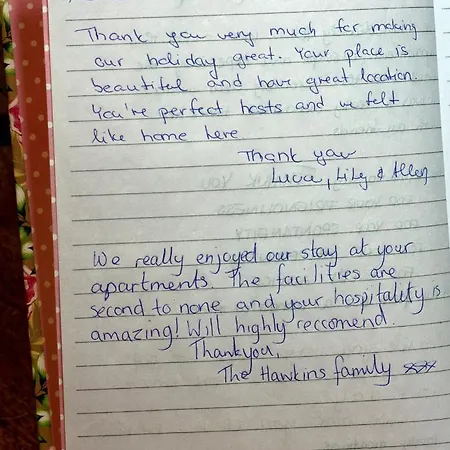 Thank you very much for making
our holiday great. Your place is
beautiful and have great location.
You're perfect hosts and we felt
like home here
Thank you
Luca, Lily & Allen
We really enjoyed our stay at your
apartments. The facilities are
second to none and your hospitality is
amazing! Will highly reccomend.
Thankyou,
The Hawkins family